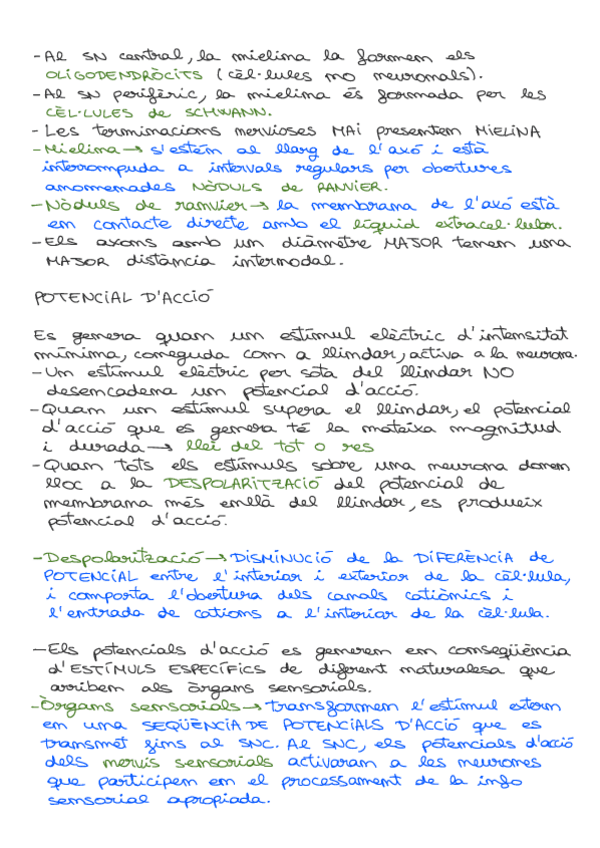 - Al SN central, la mielina la formen els
OLIGODENDRÒCITS (cèl·lules no neuronals).
- Al SN perifèric, la mielina és formada per les
CÈL·LULES de SCHWANN.
- Les terminacions nervioses MAI presenten MIELINA
- Mielina → s'estén al llarg de l'axó i està
interrompuda a intervals regulars per obertures
anomenades NÒDULS de RANVIER.
- Nòduls de ranvier → la membrana de l'axó està
en contacte directe amb el líquid extracel·lular.
- Els axons amb un diàmetre MAJOR tenen una
MAJOR distància internodal.
POTENCIAL D'ACCIÓ
Es genera quan un estímul elèctric d'intensitat
mínima, coneguda com a llindar, activa a la neurona.
- Un estímul elèctric per sota del llindar NO
desencadena un potencial d'acció.
- Quan un estímul supera el llindar, el potencial
d'acció que es genera té la mateixa magnitud
i durada → llei del tot o res
- Quan tots els estímuls sobre una neurona donen
lloc a la DESPOLARITZACIÓ del potencial de
membrana més enllà del llindar, es produeix
potencial d'acció.
- Despolarització → DISMINUCIÓ de la DIFERÈNCIA de
POTENCIAL entre l'interior i exterior de la cèl·lula,
i comporta l'obertura dels canals catiònics i
l'entrada de cations a l'interior de la cèl·lula.
- Els potencials d'acció es generen en conseqüència
d'ESTÍMULS ESPECÍFICS de diferent naturalesa que
arriben als òrgans sensorials.
- Òrgans sensorials → transformen l'estímul extern
en una SEQÜÈNCIA DE POTENCIALS D'ACCIÓ que es
transmet fins al SNC. Al SNC, els potencials d'acció
dels nervis sensorials activaran a les neurones
que participen en el processament de la info
sensorial apropiada.